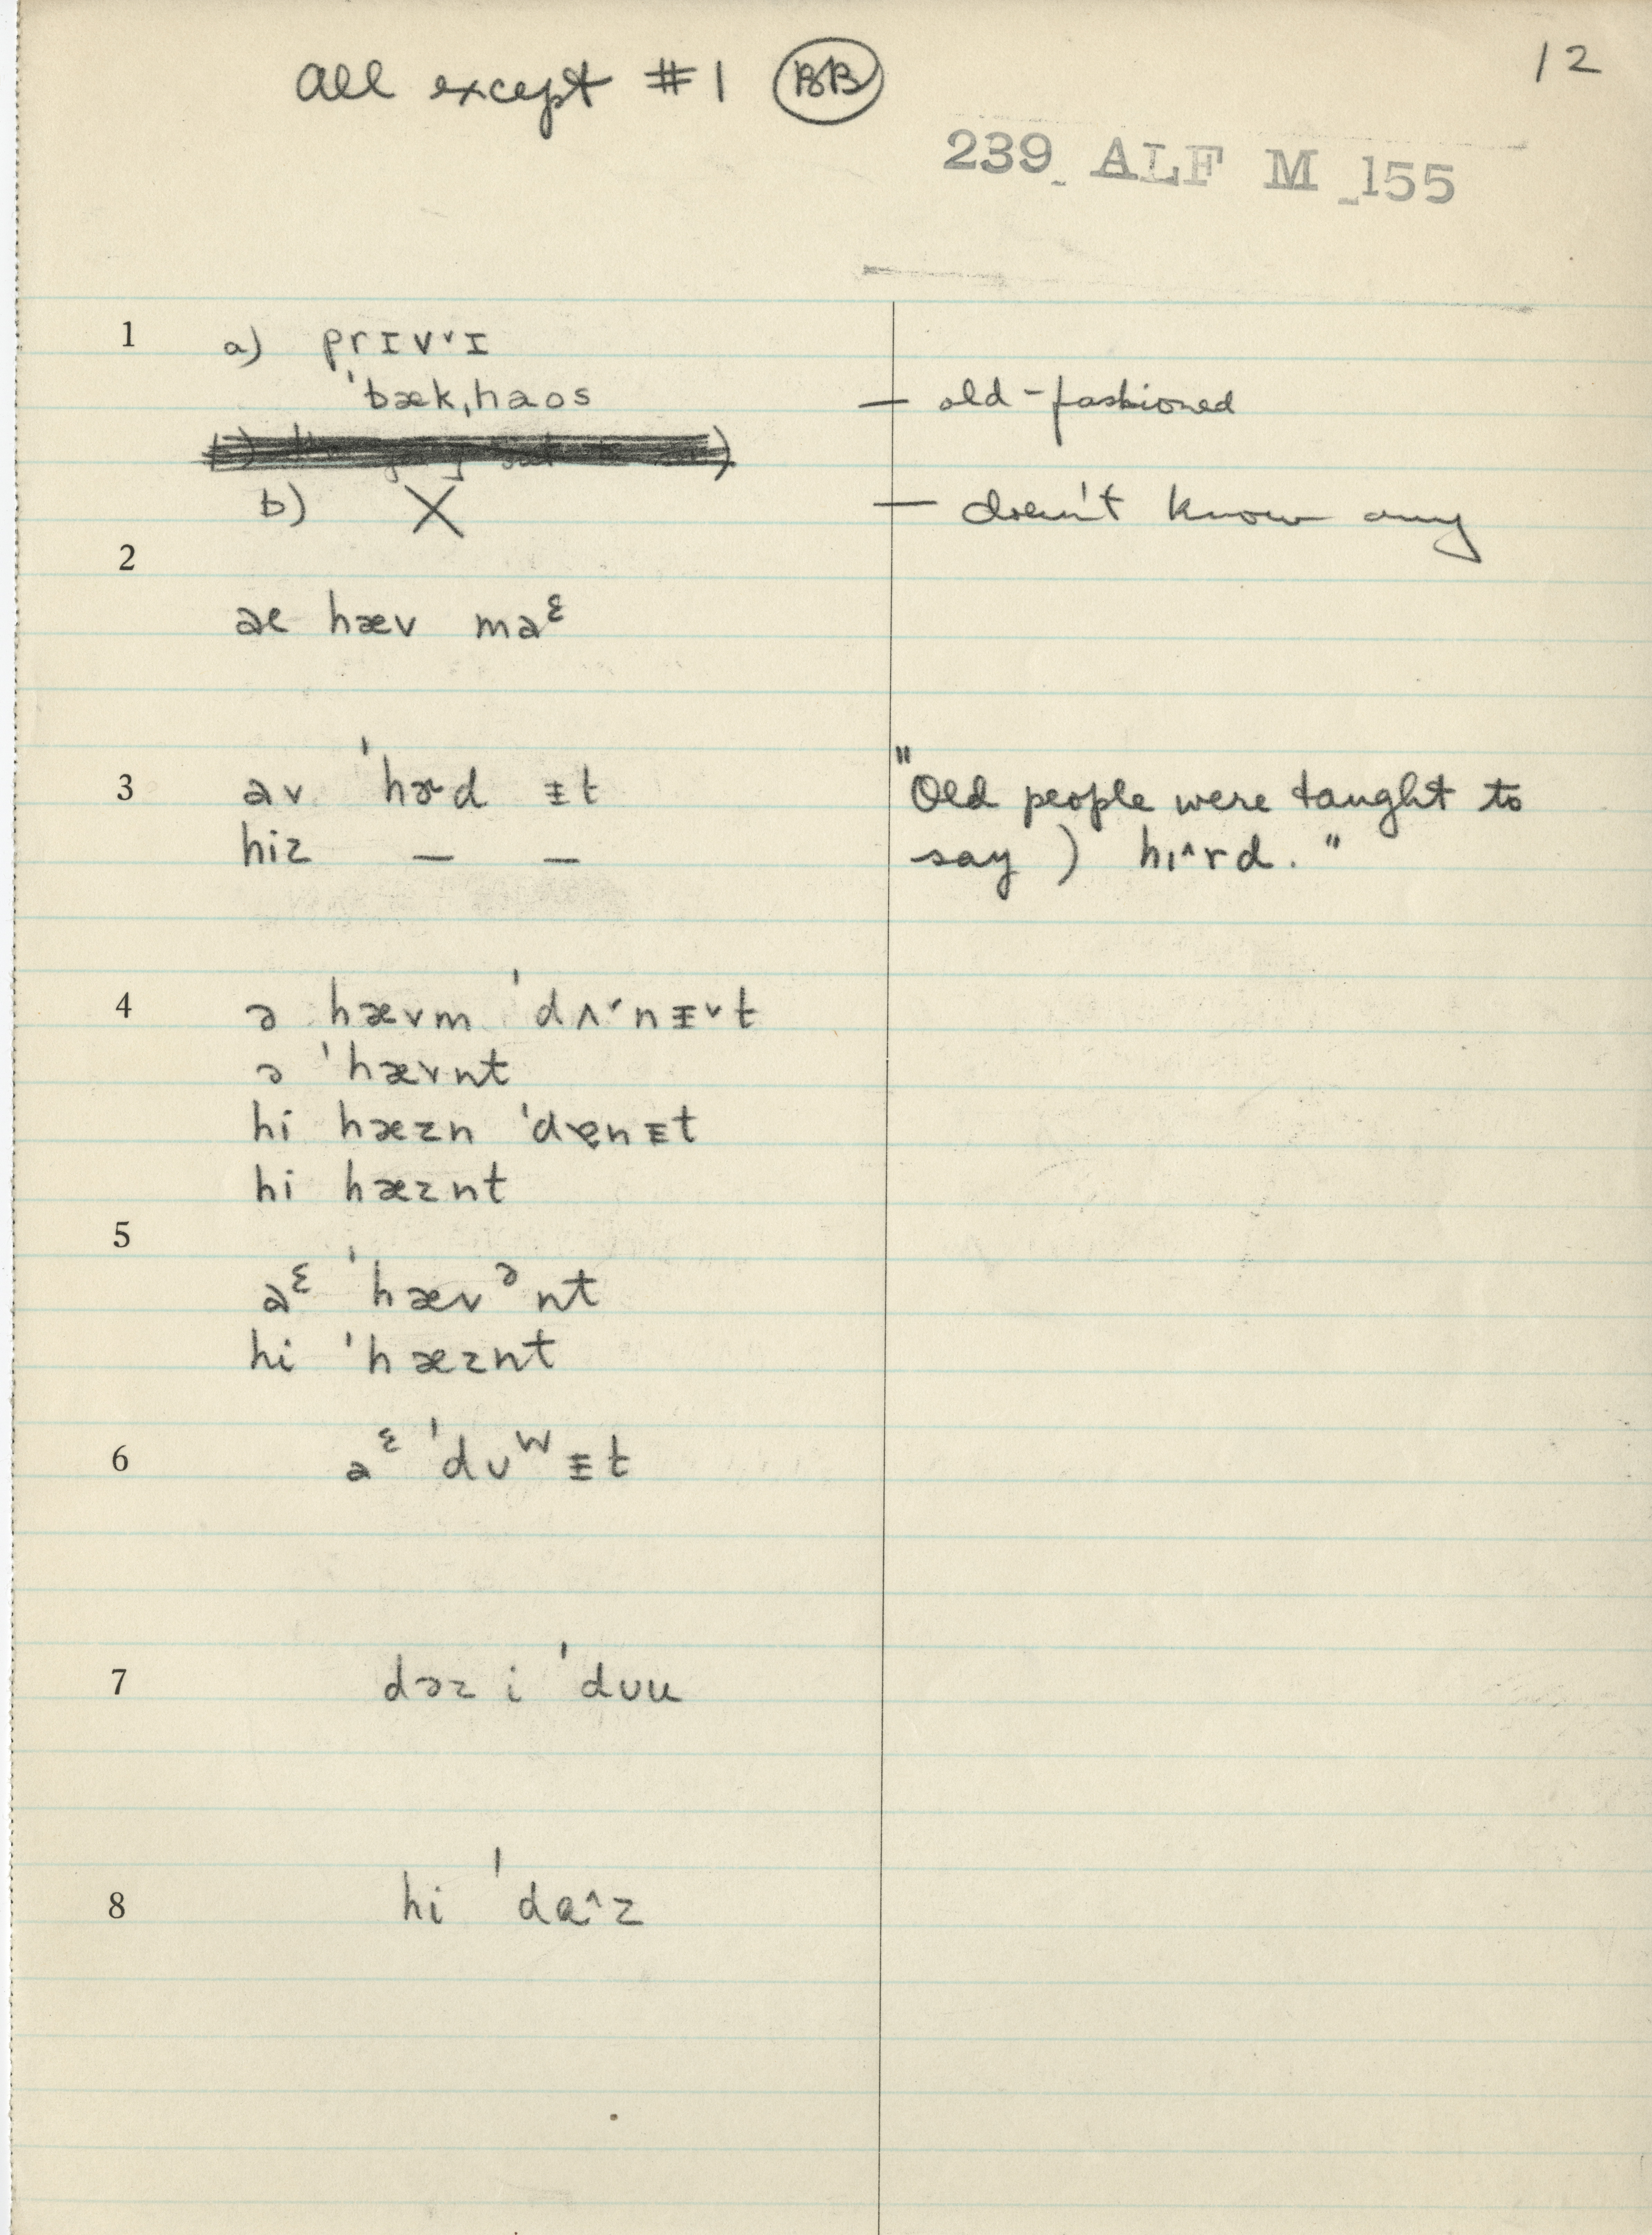 All except #1 BB
12
239 ALF M 155
1 a) prɪvˇɪ
ˈbækˌhaos — old-fashioned
b) X — doesn't know any
2
ae hæv maᵋ
3 av ˈhɝd ɪ̵t "Old people were taught to
hiz — — say ) hɪ^rd."
4 ə hævm ˈdʌˇnɪ̵ˇt
ə ˈhævnt
hi hæzn ˈdɐnɪ̵t
hi hæznt
5
aᵋ ˈhævᵊnt
hi ˈhæznt
6 aᵋ ˈdʊʷɪ̵t
7 dəz i ˈdʊu
8 hi ˈdɐ^z